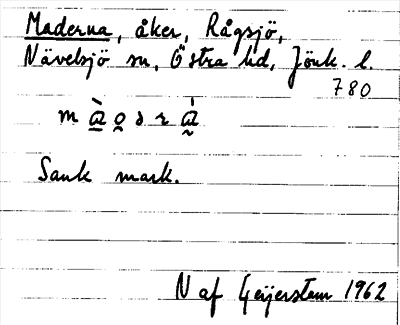 Maderna, åker, Rågsjö,
Nävelsjö sn, Östra hd, Jönk. l.
780
m à̱ o̱ d r á̰
Sank mark.
N af Geijerstam 1962